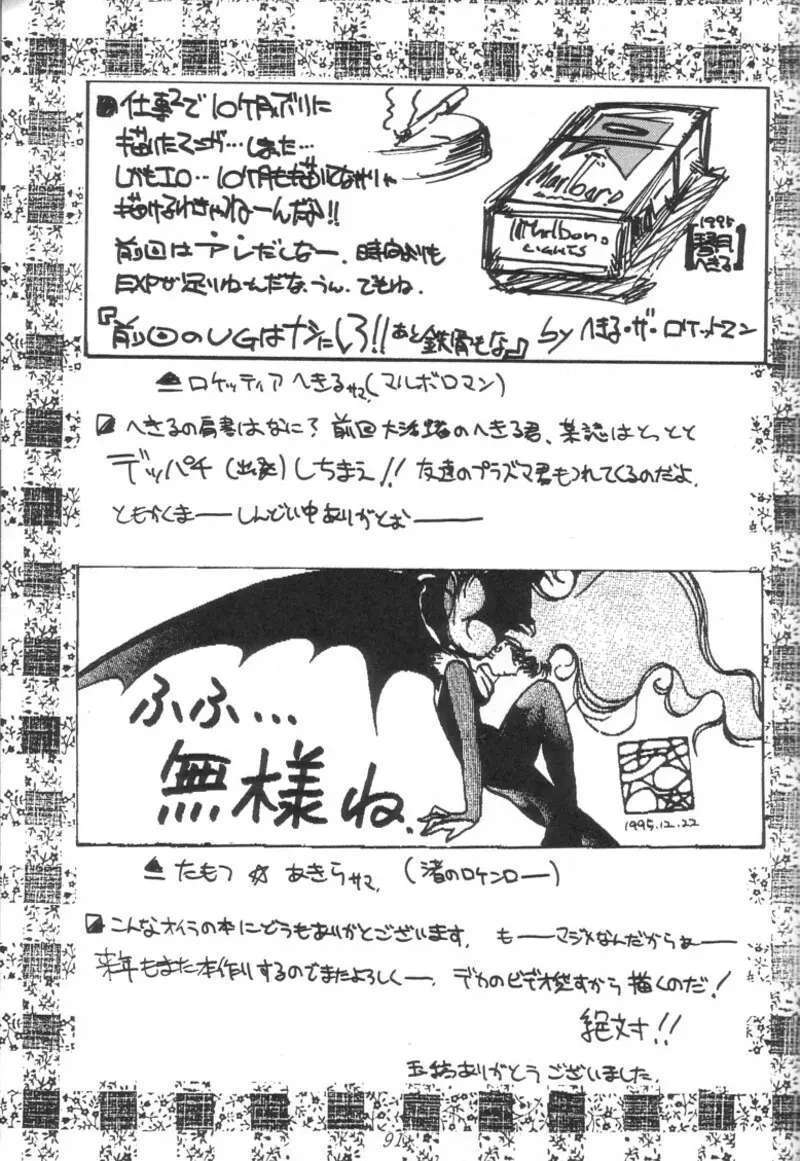 仕事で10ケ月ぶりに
描けたマンガ…しまた…
しかもエロ…10ケ月も描いてなかりゃ
描けるわきゃねーんだな!!
前回はアレだしなー、時間よりも
EXPが足りねーんだな、うん、でもね、
『前回のUGはナシにしろ!!あと鉄骨もな』 by へきる・ザ・ロケットマン
Marlboro
Marlboro
LIGHTS
1995
へきる
ロケッティア へきるサマ(マルボロマン)
へきるの肩書はなに? 前回大活躍のへきる君、某誌はとっとと
デッパチ(出発)しちまえ!! 友達のプラズマ君もつれてくるのだよ、
ともかくまーーしんどい中ありがとおーーー
ふふ…
無様ね.
1995.12.22
たもつ☆あきらサマ (渚のロケンロー)
こんなオイラの本にどうもありがとございます。 もーーマジメなんだからぁーー
来年もまた本作りするのでまたよろしくー、デカのビデオ渡すから描くのだ!
絶対!!
玉稿ありがとうございました
91